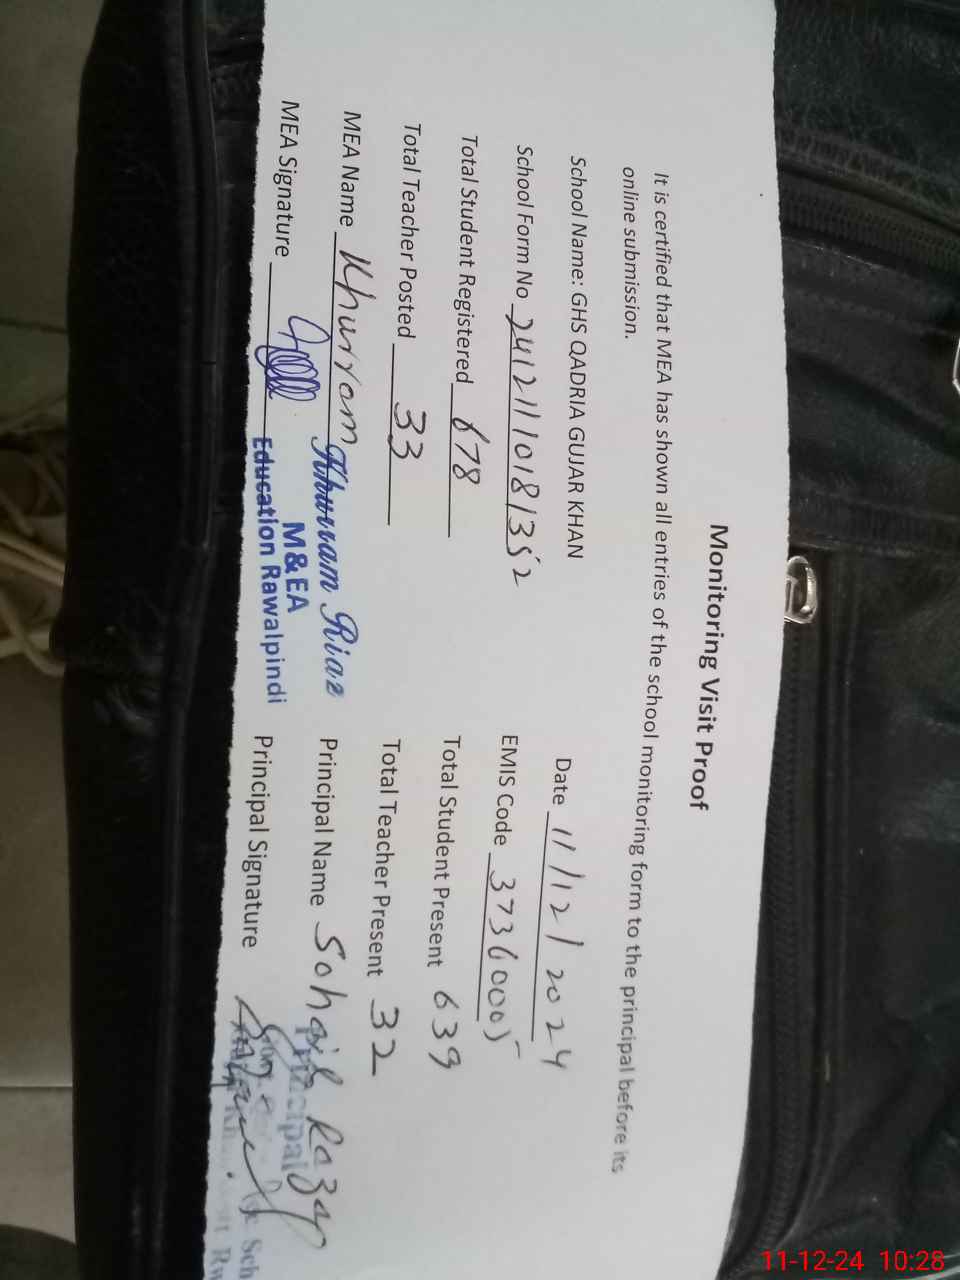 Monitoring Visit Proof
It is certified that MEA has shown all entries of the school monitoring form to the principal before its
online submission.
School Name: GHS QADRIA GUJAR KHAN
Date 11/12/2024
School Form No 24121110181352
EMIS Code 37360005
Total Student Registered 678
Total Student Present 639
Total Teacher Posted 33
Total Teacher Present 32
MEA Name Khurrom
Khurram Riaz
Principal Name Sohail Raza
MEA Signature
M&EA
Education Rawalpindi
Principal Signature
Principal
11-12-24 10:28